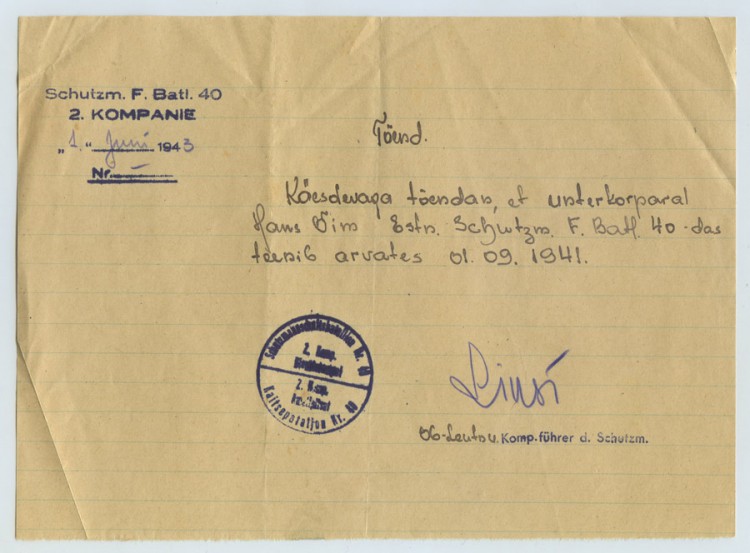 Schutzm. F. Batl. 40
2. KOMPANIE
„1.“ Juni 1943
Nr. —
Tõend.
Käesdevaga tõendan, et unterkorporal
Hans Õim Estn. Schutzm. F. Batl. 40-das
teenib arvates 01.09.1941.
Schutzmannschaftsbataljon Nr. 40
2. Komp.
2. Komp.
Kaitsepataljon Nr. 40
Ob-Leutn u. Komp.führer d. Schutzm.